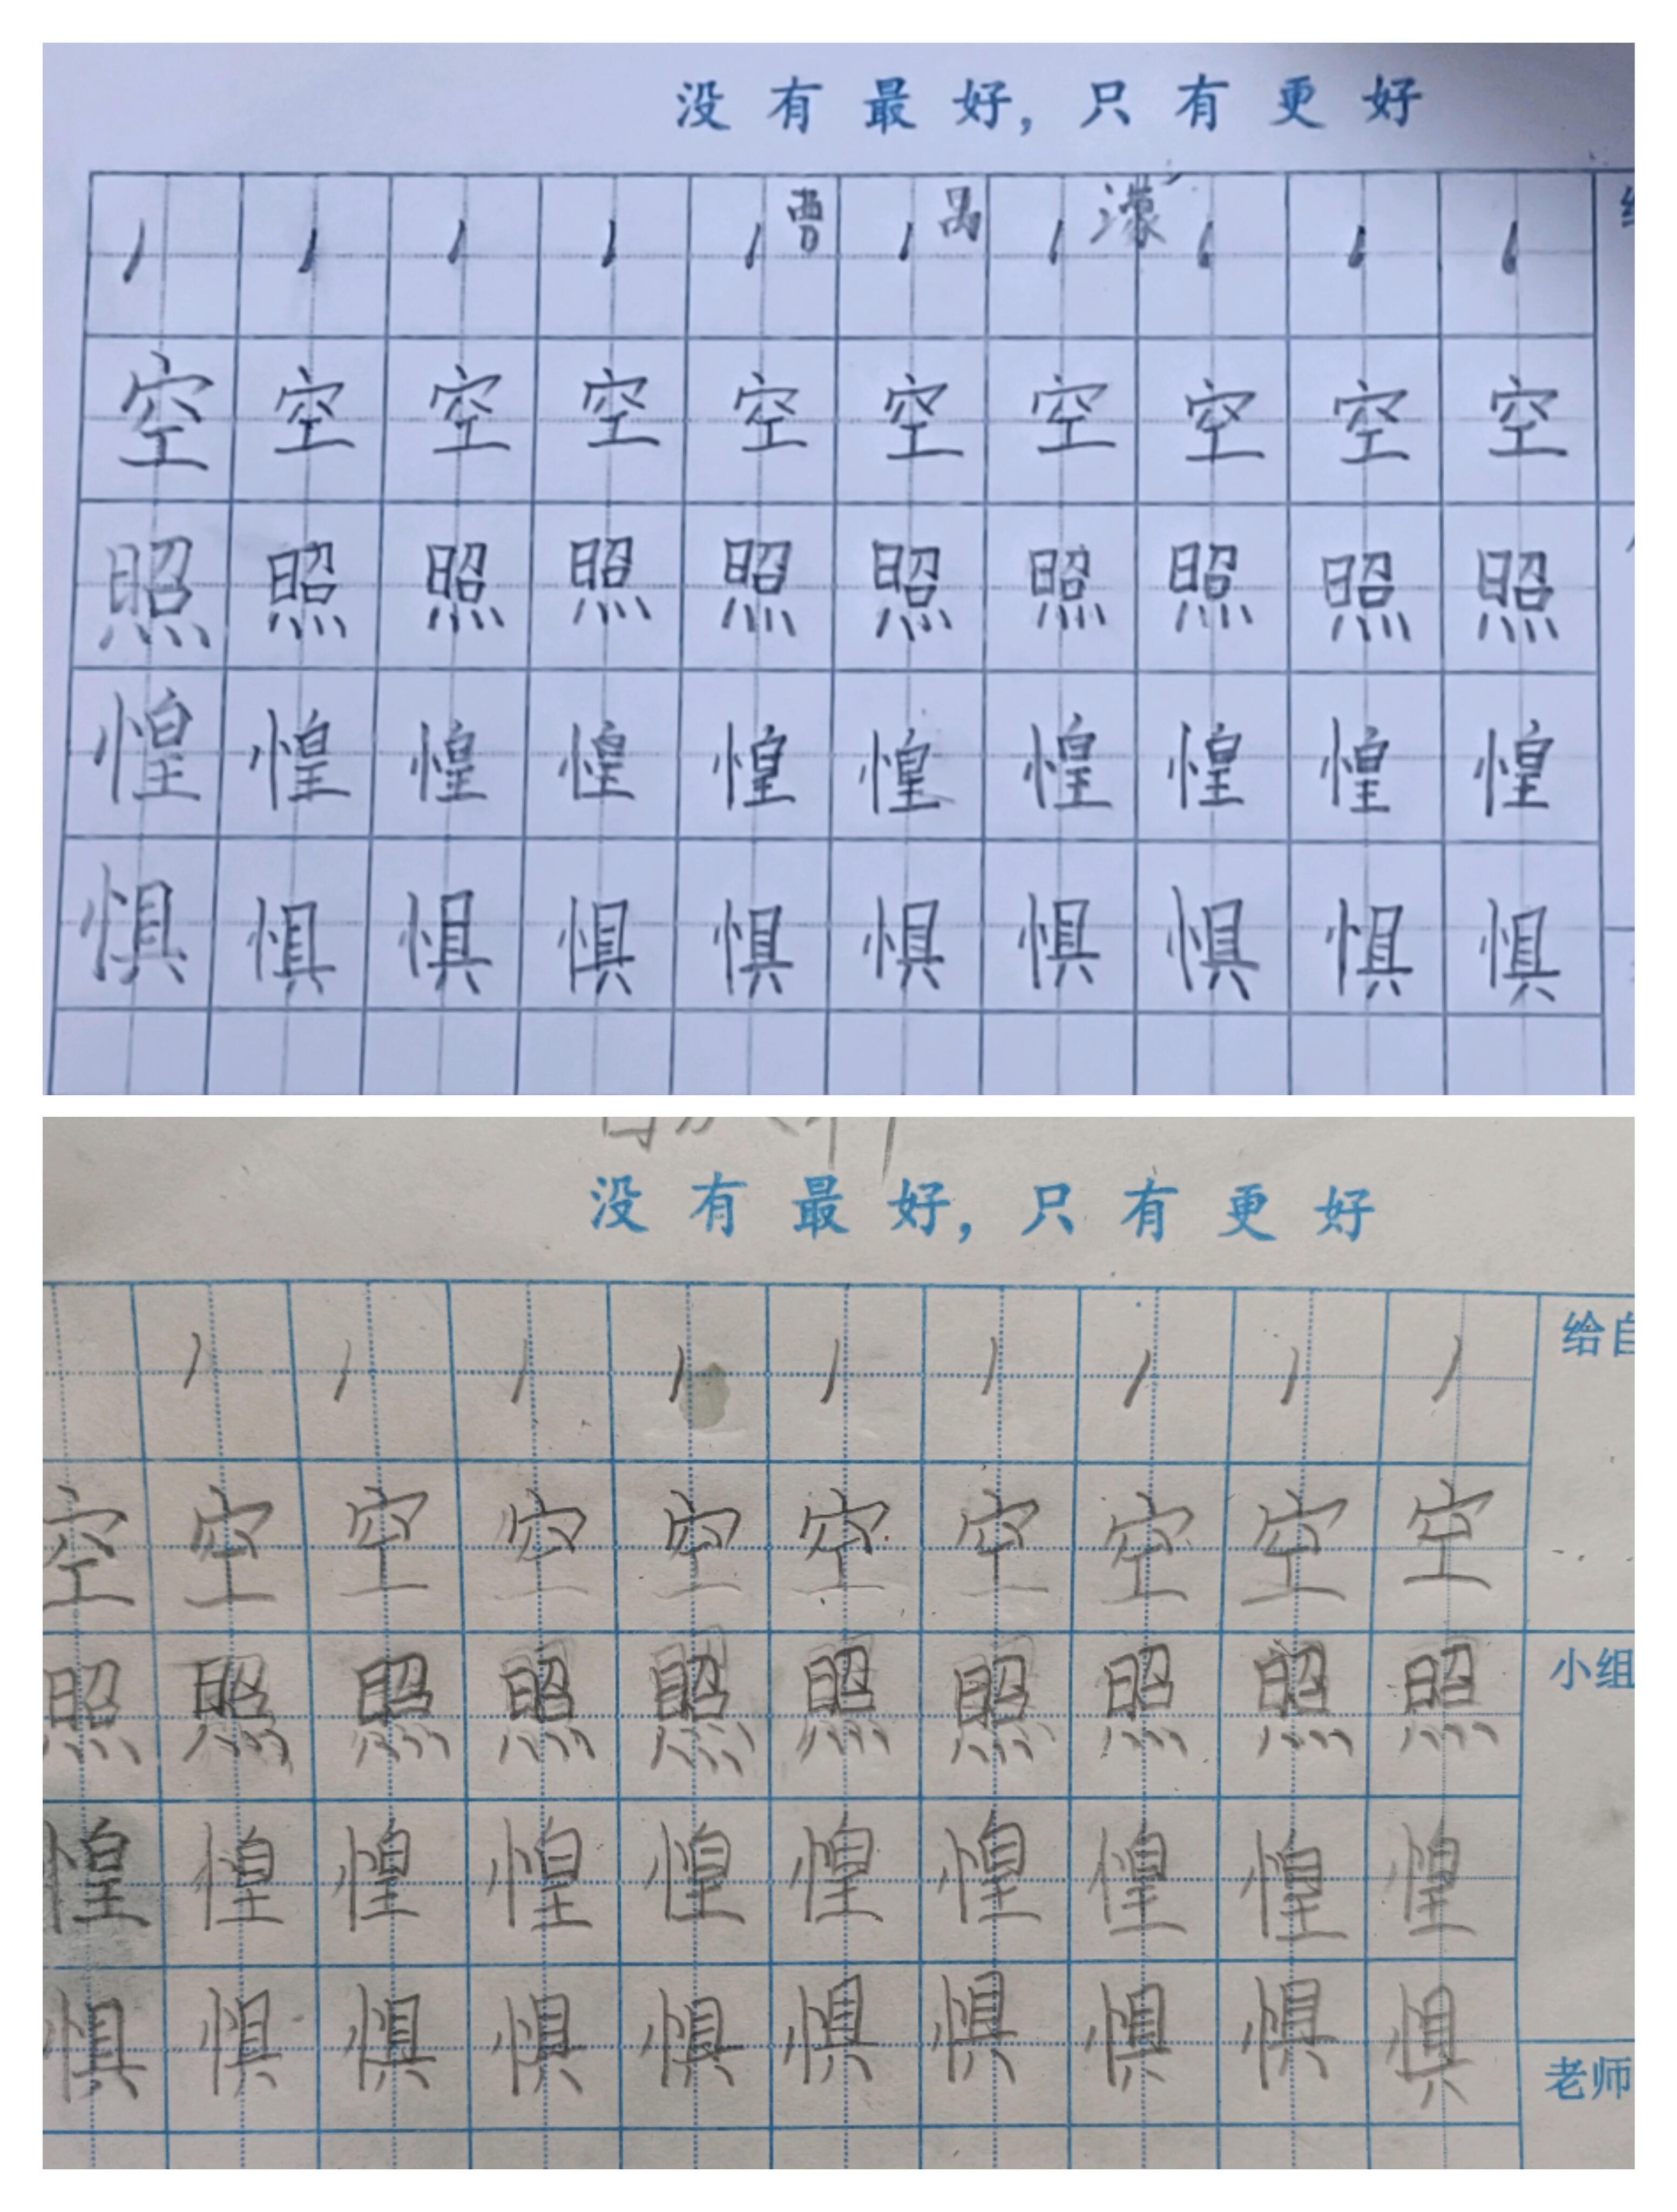 没有最好，只有更好
曹 禺 濛
空 空 空 空 空 空 空 空 空 空
照 照 照 照 照 照 照 照 照 照
惶 惶 惶 惶 惶 惶 惶 惶 惶 惶
惧 惧 惧 惧 惧 惧 惧 惧 惧 惧
没有最好，只有更好
给自
空 空 空 空 空 空 空 空 空 空
照 照 照 照 照 照 照 照 照 照
小组
惶 惶 惶 惶 惶 惶 惶 惶 惶 惶
惧 惧 惧 惧 惧 惧 惧 惧 惧 惧
老师